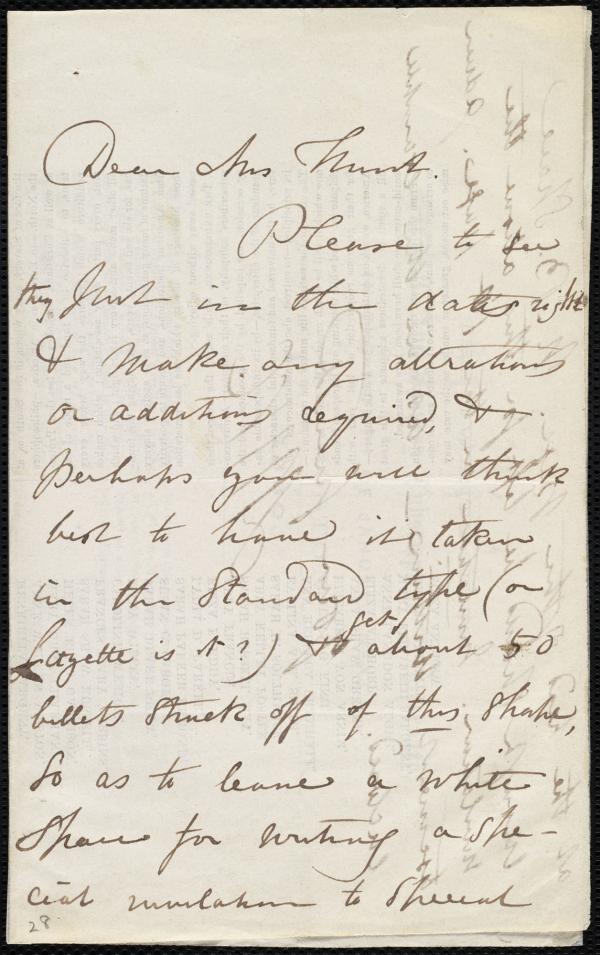 Dear Mrs Hunt.
Please to see
they put in the dates right
& make any altrations
or additions required, &
perhaps you will think
best to have it taken
in the Standard type (or
Gazette is it?) & get about 50
billets struck off of this shape,
so as to leave a white
space for writing a spe-
cial invitation to special
28